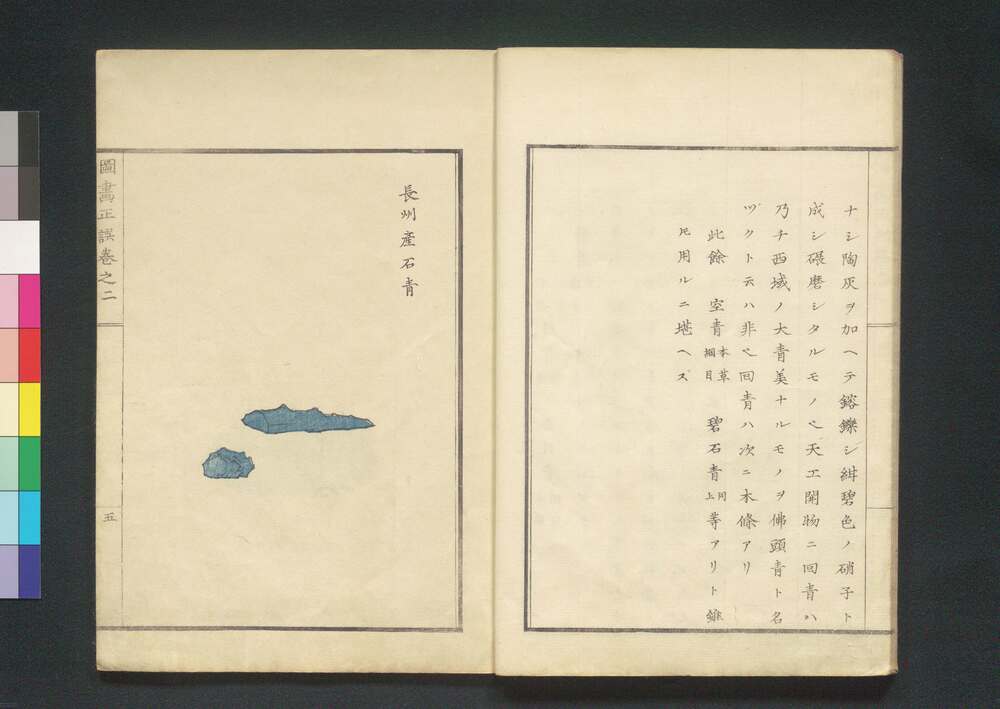 ナシ陶灰ヲ加ヘテ鎔鑠シ紺碧色ノ硝子ト
成シ碾磨シタルモノ也天工開物ニ回青ハ
乃チ西域ノ大青美ナルモノヲ佛頭青ト名
ヅクト云ハ非也回青ハ次ニ本條アリ
此餘 空青本草綱目 碧石青同上等アリト雖
𪜈用ルニ堪ヘズ
長州産石青
圖畵正誤卷之二
五